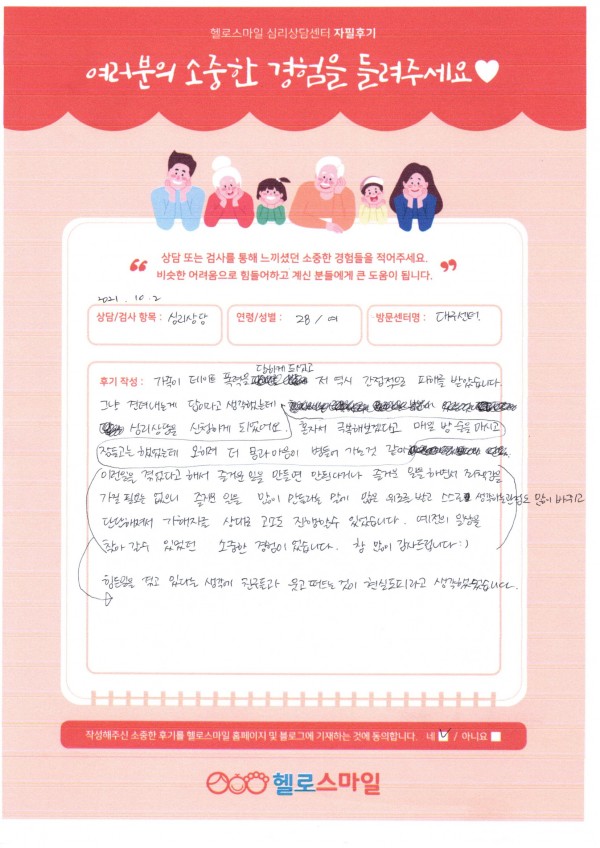 헬로스마일 심리상담센터 자필후기
여러분의 소중한 경험을 들려주세요♥
상담 또는 검사를 통해 느끼셨던 소중한 경험들을 적어주세요.
비슷한 어려움으로 힘들어하고 계신 분들에게 큰 도움이 됩니다.
2021. 10. 2
상담/검사 항목 : 심리상담
연령/성별 : 28 / 여
방문센터명 : 대구센터.
당하게 되고
후기 작성 : 가족이 데이트 폭력을 저 역시 간접적으로 피해를 받았습니다.
그냥 견뎌내는게 답이라고 생각했는데
심리상담을 신청하게 되었어요. 혼자서 극복해보겠다고 매일 밤 술을 마시고
잠들고는 했었는데 오히려 더 몸과 마음이 병들어 가는것 같아
이런일을 겪었다고 해서 즐거운 일을 만들면 안된다거나 즐거운 일을 하면서 죄책감을
가질 필요는 없으니 즐거운 일을 많이 만들라는 말에 많은 위로를 받고 스스로 생각하는 관점도 많이 바뀌고
단단해져서 가해자를 상대로 고소도 진행할수 있었습니다. 예전의 일상을
찾아 갈수 있었던 소중한 경험이었습니다. 참 많이 감사드립니다 :)
힘든일을 겪고 있다는 생각에 친구들과 웃고 떠드는 것이 현실도피라고 생각했었습니다.
작성해주신 소중한 후기를 헬로스마일 홈페이지 및 블로그에 기재하는 것에 동의합니다. 네 ☑ / 아니요 ☐
헬로스마일